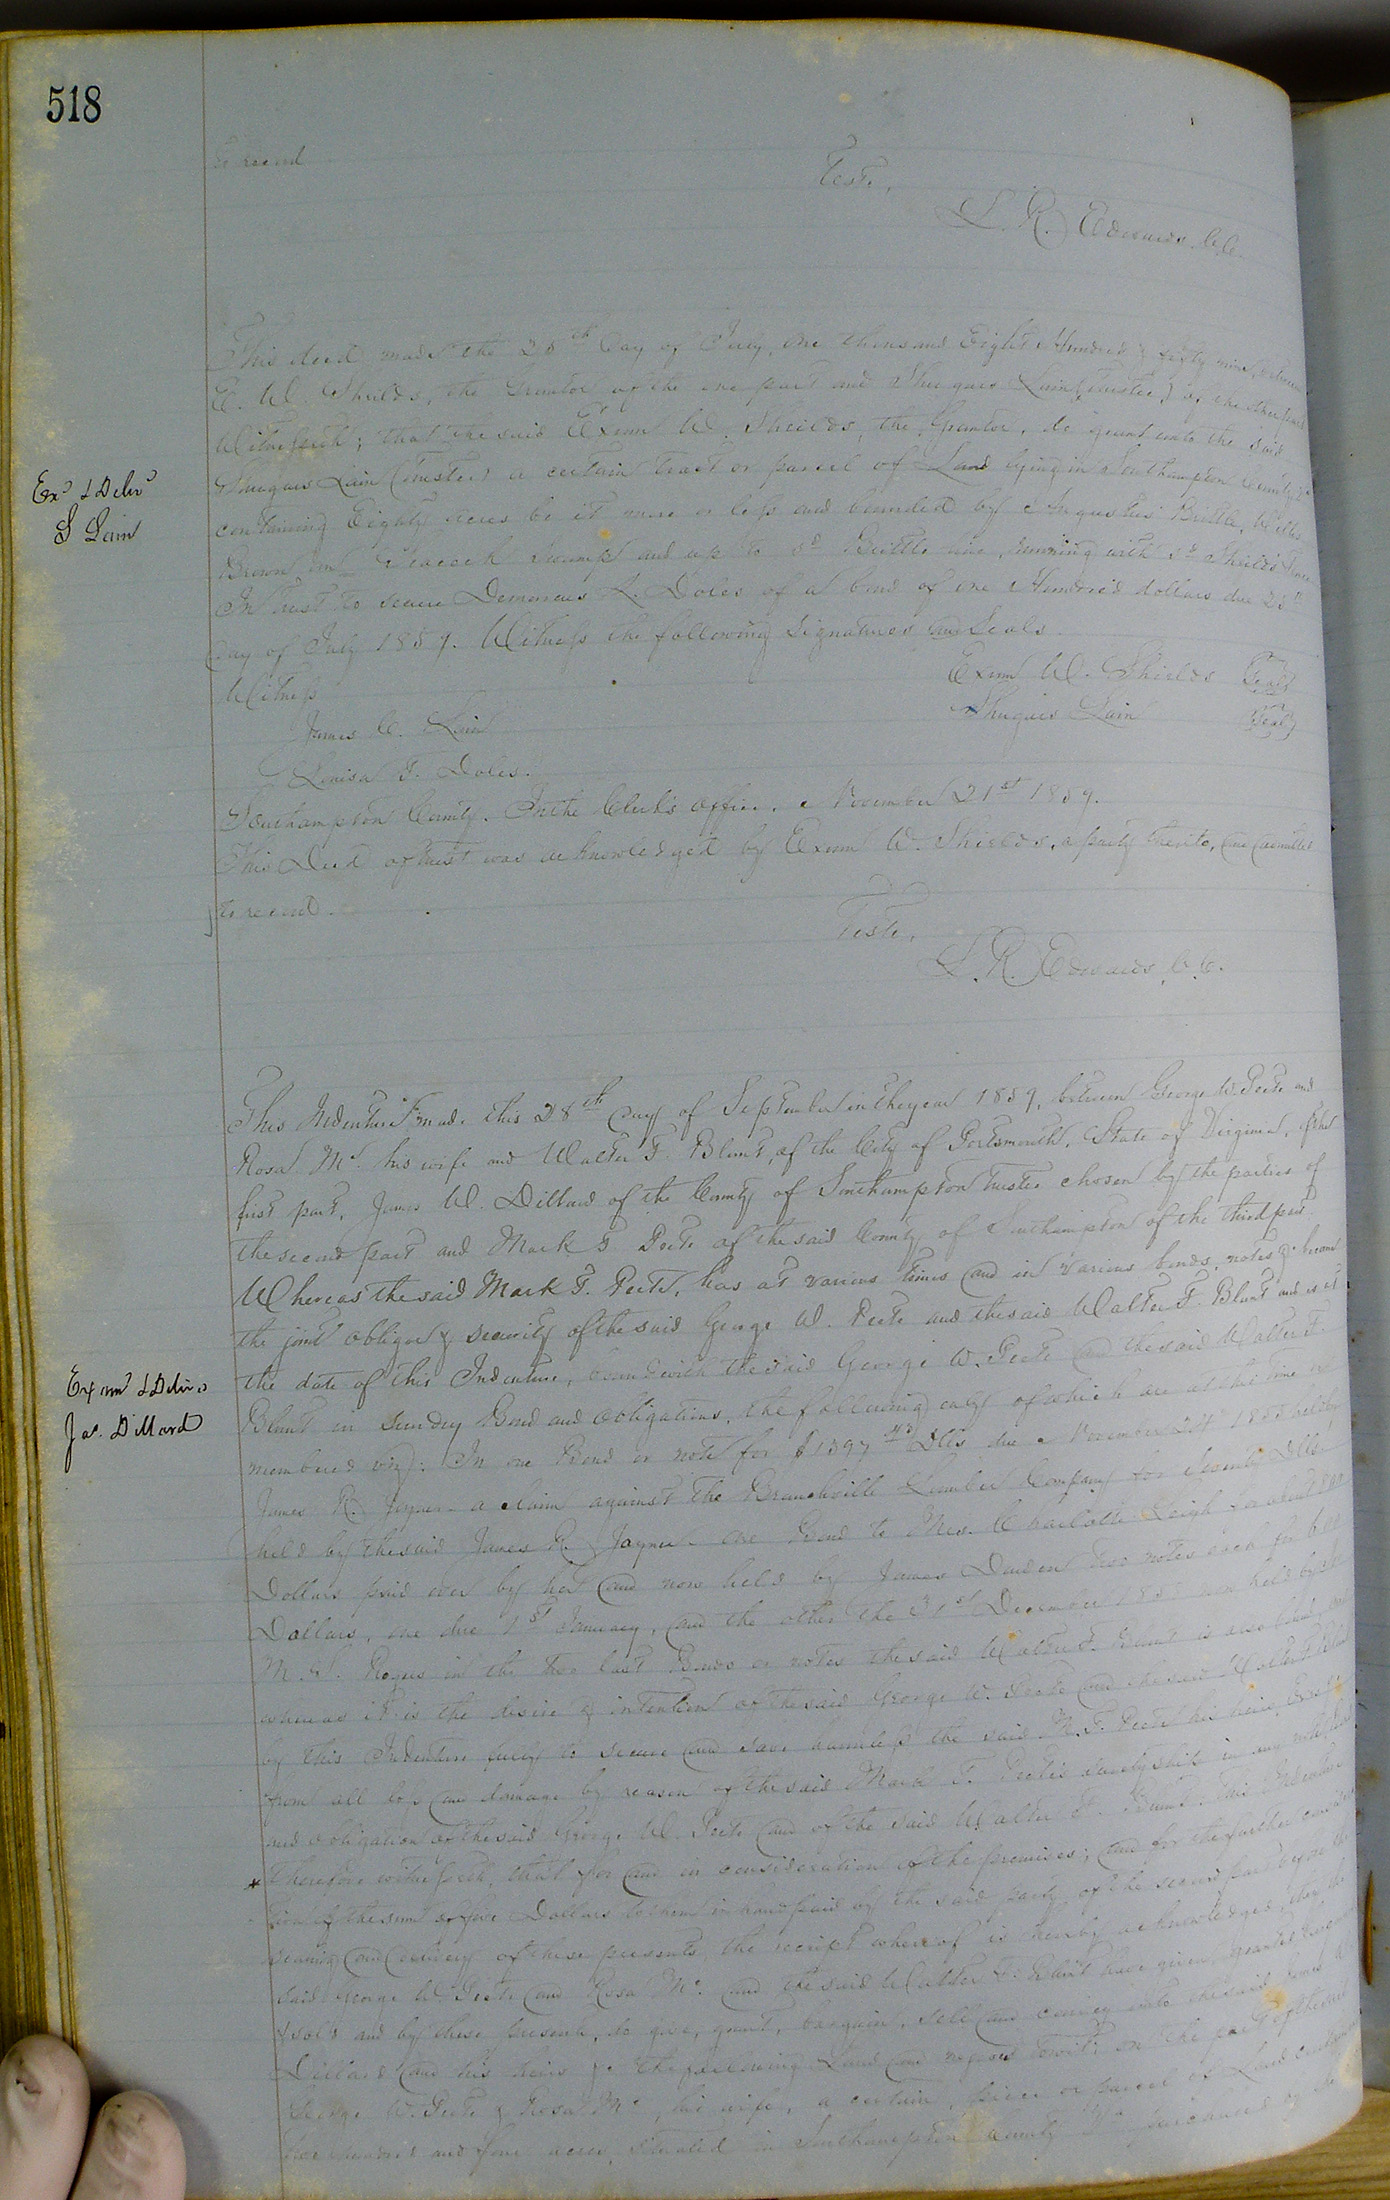 518
to record
Teste,
L. R. Edwards. C.C.
This deed made the 28th day of July, One thousand Eight Hundred & fifty nine, between
E. W. Shields, the Grantor of the one part and Shugars Lain (trustee) of the other part
Witnesseth; that the said Exum W. Shields, the Grantor, do grant unto the said
Ex.d & Deliv.d
S Lain
Shugars Lain (trustee) a certain tract or parcel of Land lying in Southampton County
containing Eighty acres be it more or less and bounded by Augustus Brittle,
Brown swamp and up to sd Brittles line, running with sd Shields
In trust to secure L. Doles of a bond of one Hundred dollars due 25th
day of July 1859. Witness the following signatures and Seals.
Witness
Exum W. Shields (Seal)
Shugars Lain (Seal)
James C. Lain
Louisa F. Doles.
Southampton County. In the Clerk's office. November 21st 1859.
This Deed of trust was acknowledged by Exum W. Shields, a party thereto, and admitted
to record.
Teste,
L. R. Edwards, C.C.
This Indenture made this 28th day of September in the year 1859, between George W. Peete and
Rosa Mc. his wife and Walter F. Blunt, of the City of Portsmouth, State of Virginia, of the
first part, James W. Dillard of the County of Southampton trustee chosen by the parties of
the second part and Mark F. Peete of the said County of Southampton of the third part
Whereas the said Mark F. Peete, has at various times and in various bonds, notes &c become
the joint obligor & security of the said George W. Peete and the said Walter F. Blunt and is at
the date of this Indenture, bound with the said George W. Peete and the said Walter F.
Exam.d & Deliv.d
Jas. Dillard
Blunt in Sundry Bond and obligations, the following only of which are at this time re
membered viz: In one Bond or note for $1397 Dlls due November 1858 held by
James R. Joyner a claim against the Branchville Lumber Company for Seventy Dlls.
held by the said James R. Joyner one Bond to Mrs. Charlotte Leigh for about 800
Dollars paid over by her and now held by James Darden two notes each for 600
Dollars, one due 1st January, and the other the 31st December 185 now held by
M. Rogers in the two last Bonds or notes the said Walter F. Blunt is also bound, and
whereas it is the desire & intention of the said George W. Peete and the said Walter F. Blunt
by this Indenture fully to secure and save harmless the said M. F. Peete his heirs,
from all loss and damage by reason of the said Mark F. Peete's suretyship in any
and obligation of the said George W. Peete and of the said Walter F. Blunt. This Indenture
* therefore witnesseth, that for and in consideration of the premises; and for the further considera
tion of the sum of five Dollars to them in hand paid by the said party of the second part before the
sealing and delivery of these presents the receipt whereof is hereby acknowledged, they the
said George W. Peete and Rosa Mc. and the said Walter F. Blunt have given, granted
& sold and by these presents, do give, grant, bargain, sell and convey unto the said James W.
Dillard and his heirs &c the following Land and negroes towit: on the part of the said
George W. Peete & Rosa Mc, his wife, a certain, piece or parcel of Land
hundred and four acres, situated in Southampton County Va purchased by the